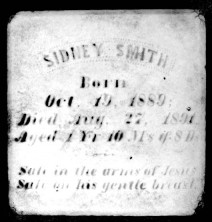 SIDNEY SMITH
Born
Oct. 19, 1889;
Died Aug. 27, 1891
Aged 1 Yr 10 M's 8 D
Safe in the arms of Jesus
Safe on his gentle breast